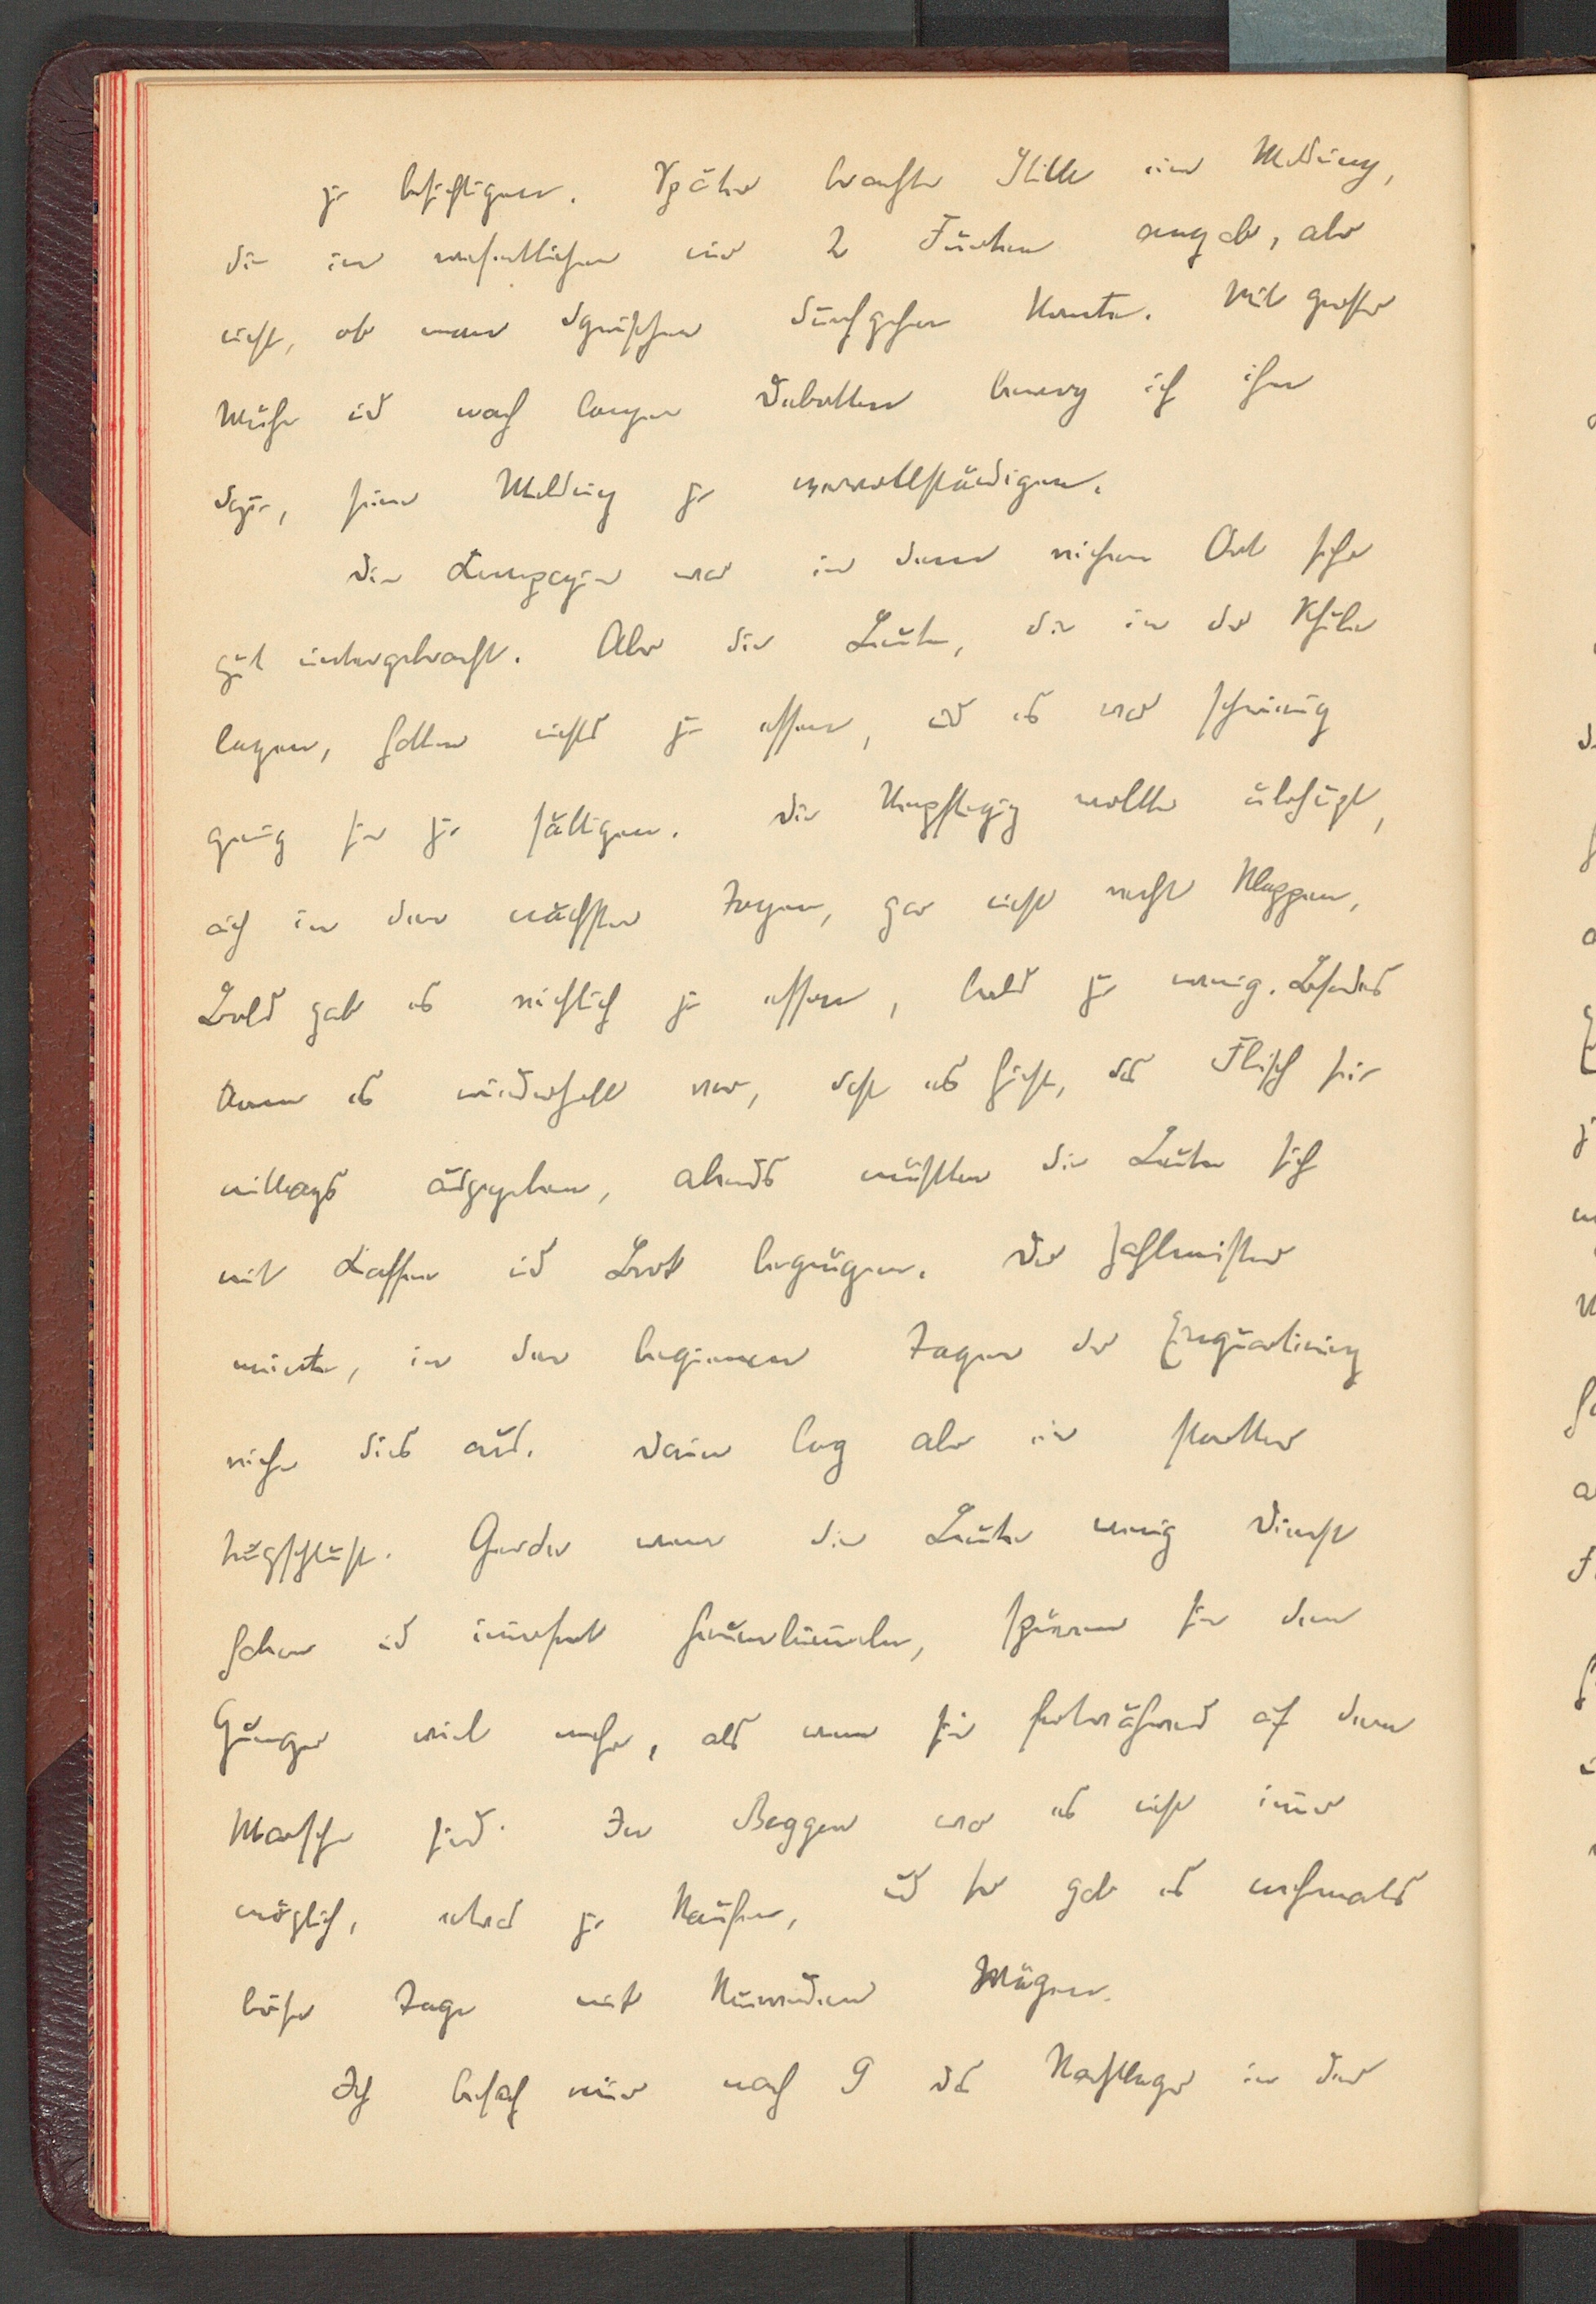 zu besichtigen. Später brachte Stille eine Meldung,
die im wesentlichen nur 2 Furten angab, aber
nicht, ob man dazwischen durchgehen konnte. Mit grosser
Mühe und nach langen Debatten bewog ich ihn
dazu, seine Meldung zu vervollständigen.
Die Kompagnie war in dem reichen Ort sehr
gut untergebracht. Aber die Leute, die in der Schule
lagen, hatten nichts zu essen, und es war schwierig
genug sie zu sättigen. Die Verpflegung wollte überhaupt,
auch in den nächsten Tagen, gar nicht recht klappen,
Bald gab es reichlich zu essen, bald zu wenig. Besonders
kam es wiederholt vor, dass es hiess, das Fleisch sei
mittags ausgegeben, abends müssten die Leute sich
mit Kaffee und Brot begnügen. Der Zahlmeister
meinte, in den bequemen Tagen der Einquartierung
reiche dies aus. Darin lag aber ein starker
Trugschluss. Gerade wenn die Leute wenig Dienst
haben und immerfort herumlümmeln, spüren sie den
Hunger viel mehr, als wenn sie fortwährend auf dem
Marsche sind. In Beggen war es nicht immer
möglich, etwas zu kaufen, und so gab es mehrmals
böse Tage mit knurrenden Mägen.
Ich besah mir nach 9 das Nachtlager in der